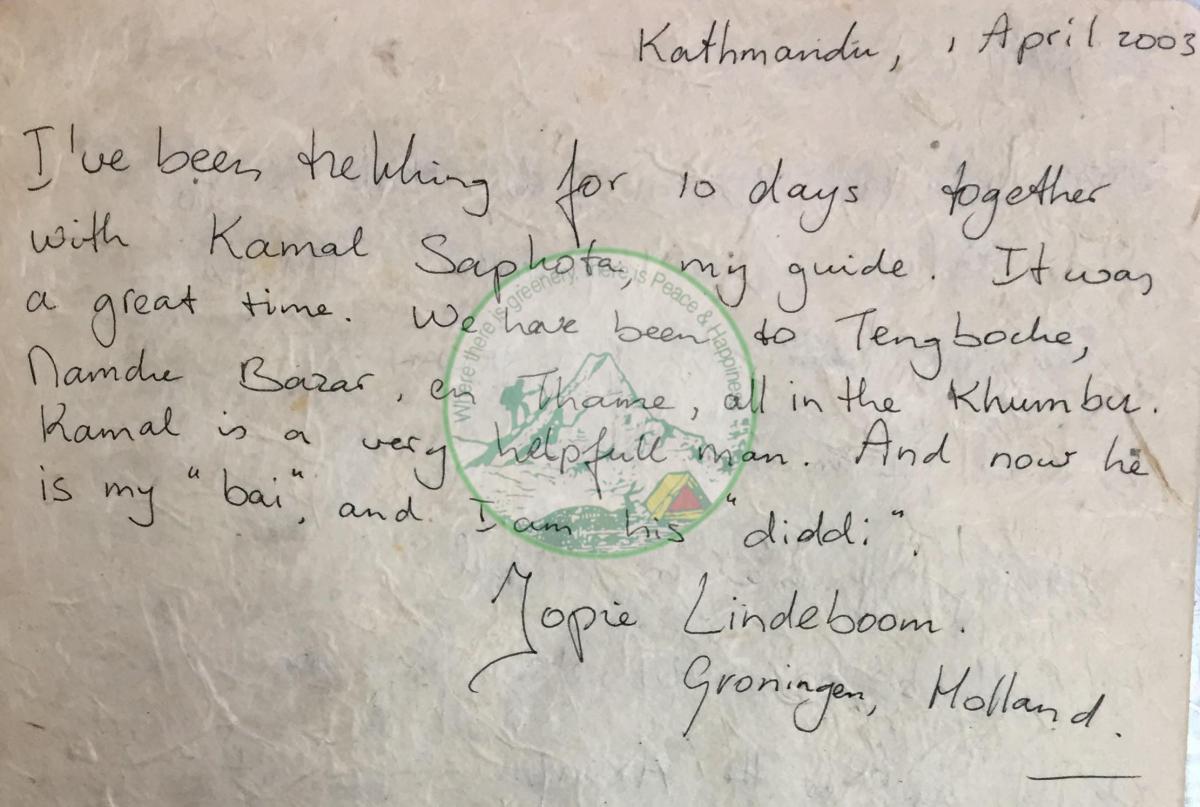 Kathmandu, , April 2003
I've been trekking for 10 days together
with Kamal Saphota, my guide. It was
a great time. We have been to Tengboche,
Namche Bazar, en Thame, all in the Khumbu.
Kamal is a very helpfull man. And now he
is my "bai", and I am his "diddi".
Jopie Lindeboom.
Groningen, Holland.
Where there is greenery, There is Peace & Happiness